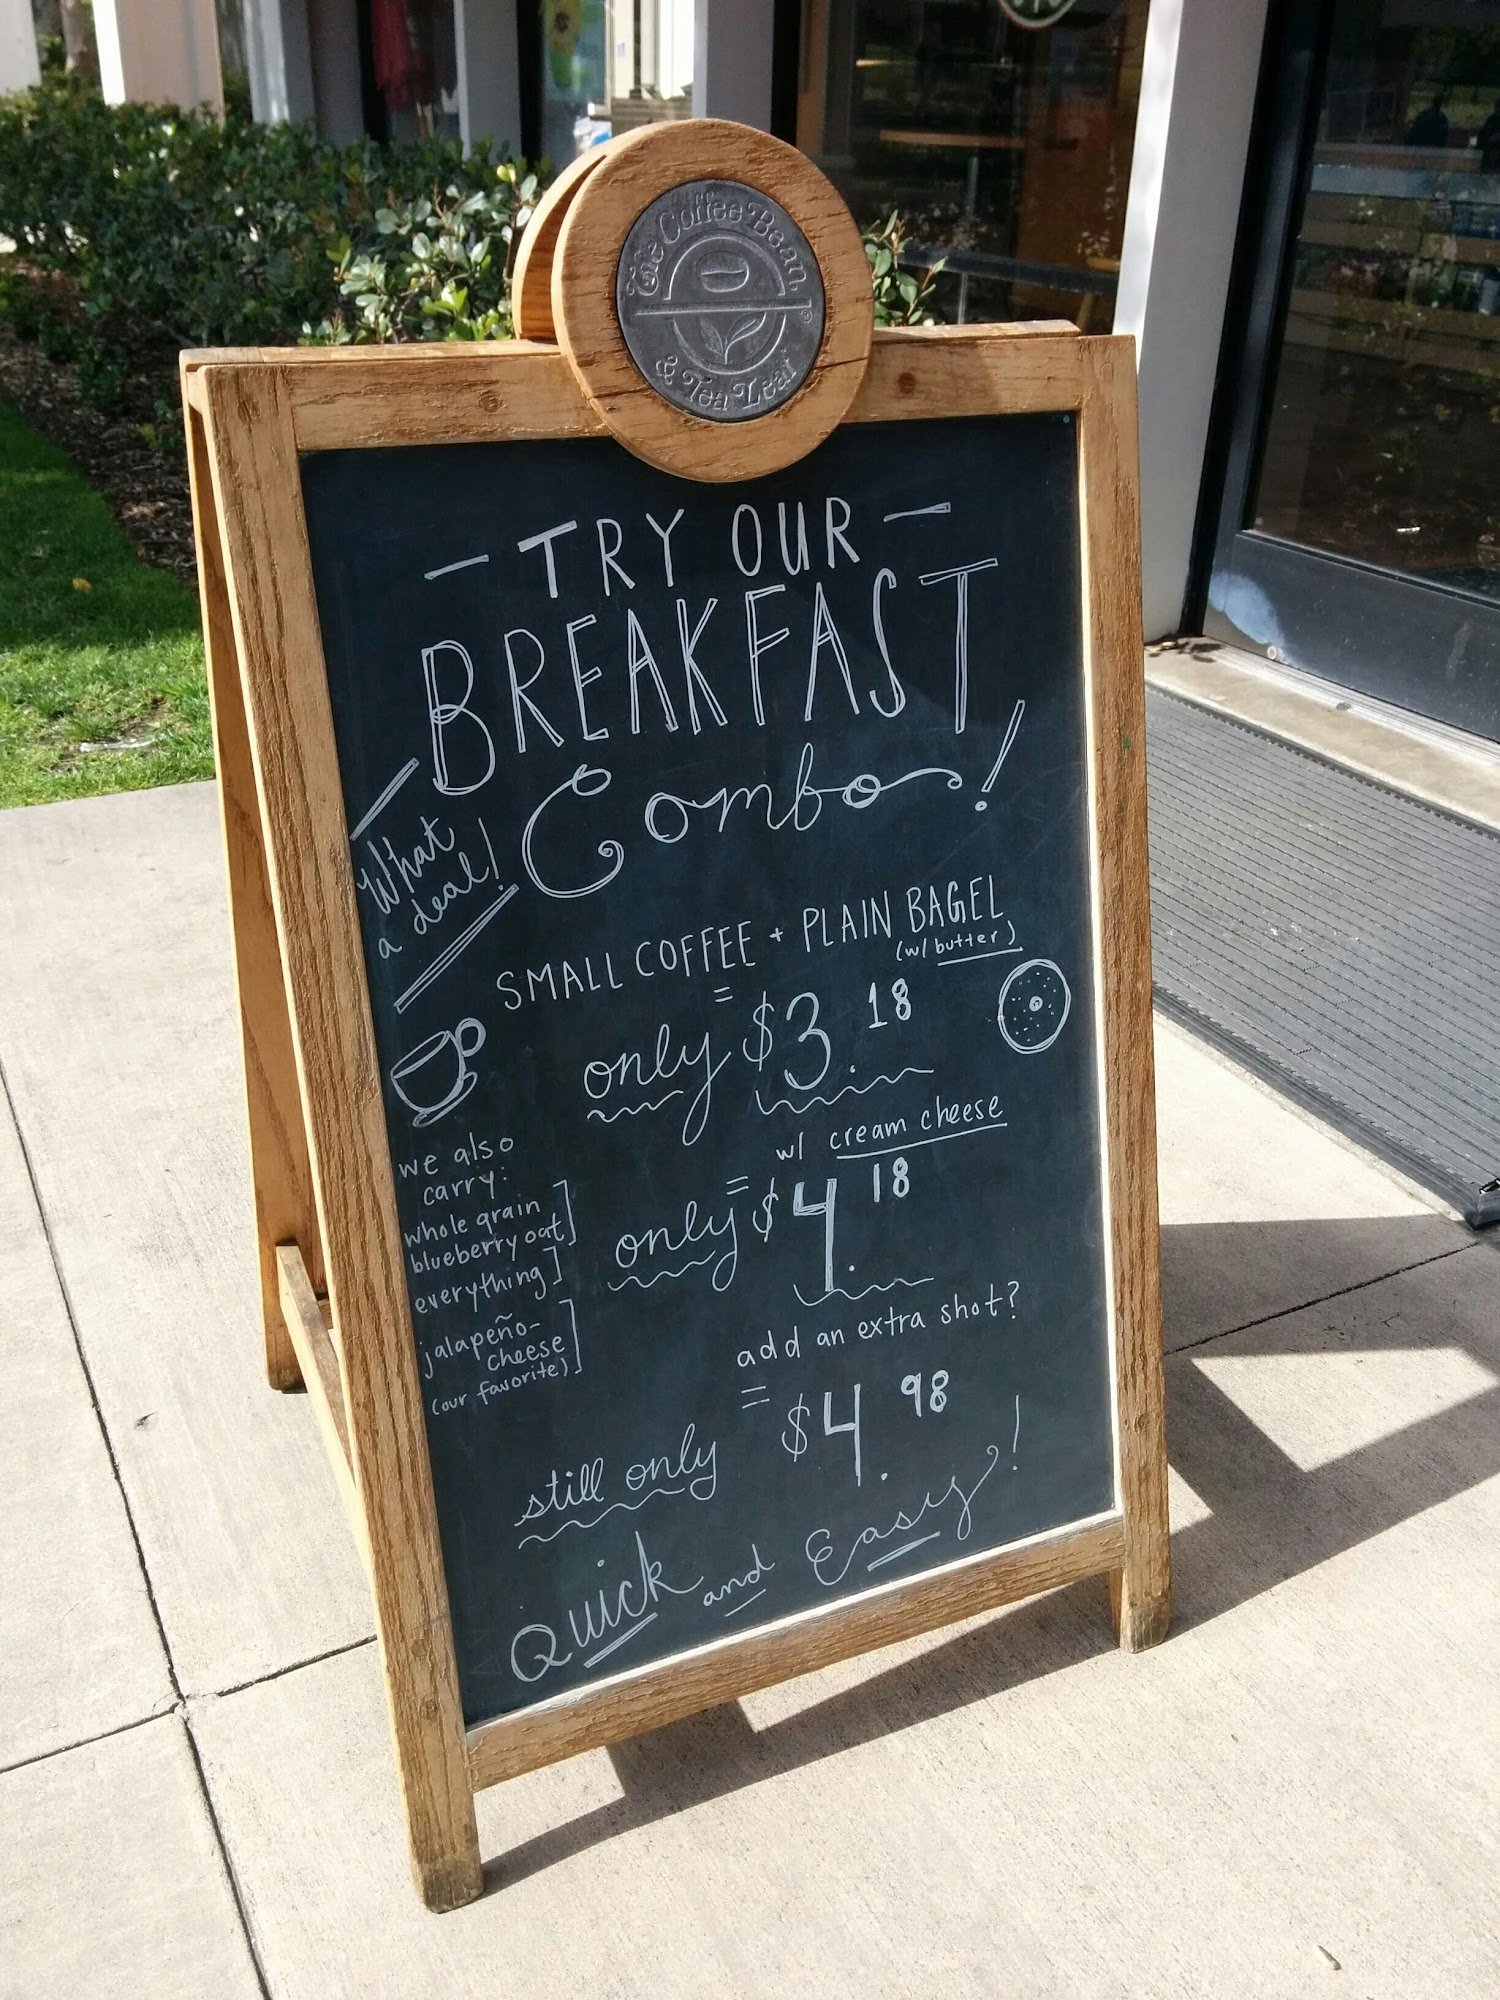 The Coffee Bean
®
& Tea Leaf
- TRY OUR -
BREAKFAST
Combo!
What
a deal!
SMALL COFFEE + PLAIN BAGEL
(w/ butter)
=
only $3.18
w/ cream cheese
=
only $4.18
add an extra shot?
=
still only $4.98
we also
carry:
whole grain
blueberry oat]
everything]
jalapeño-
cheese
(our favorite)]
Quick and Easy!